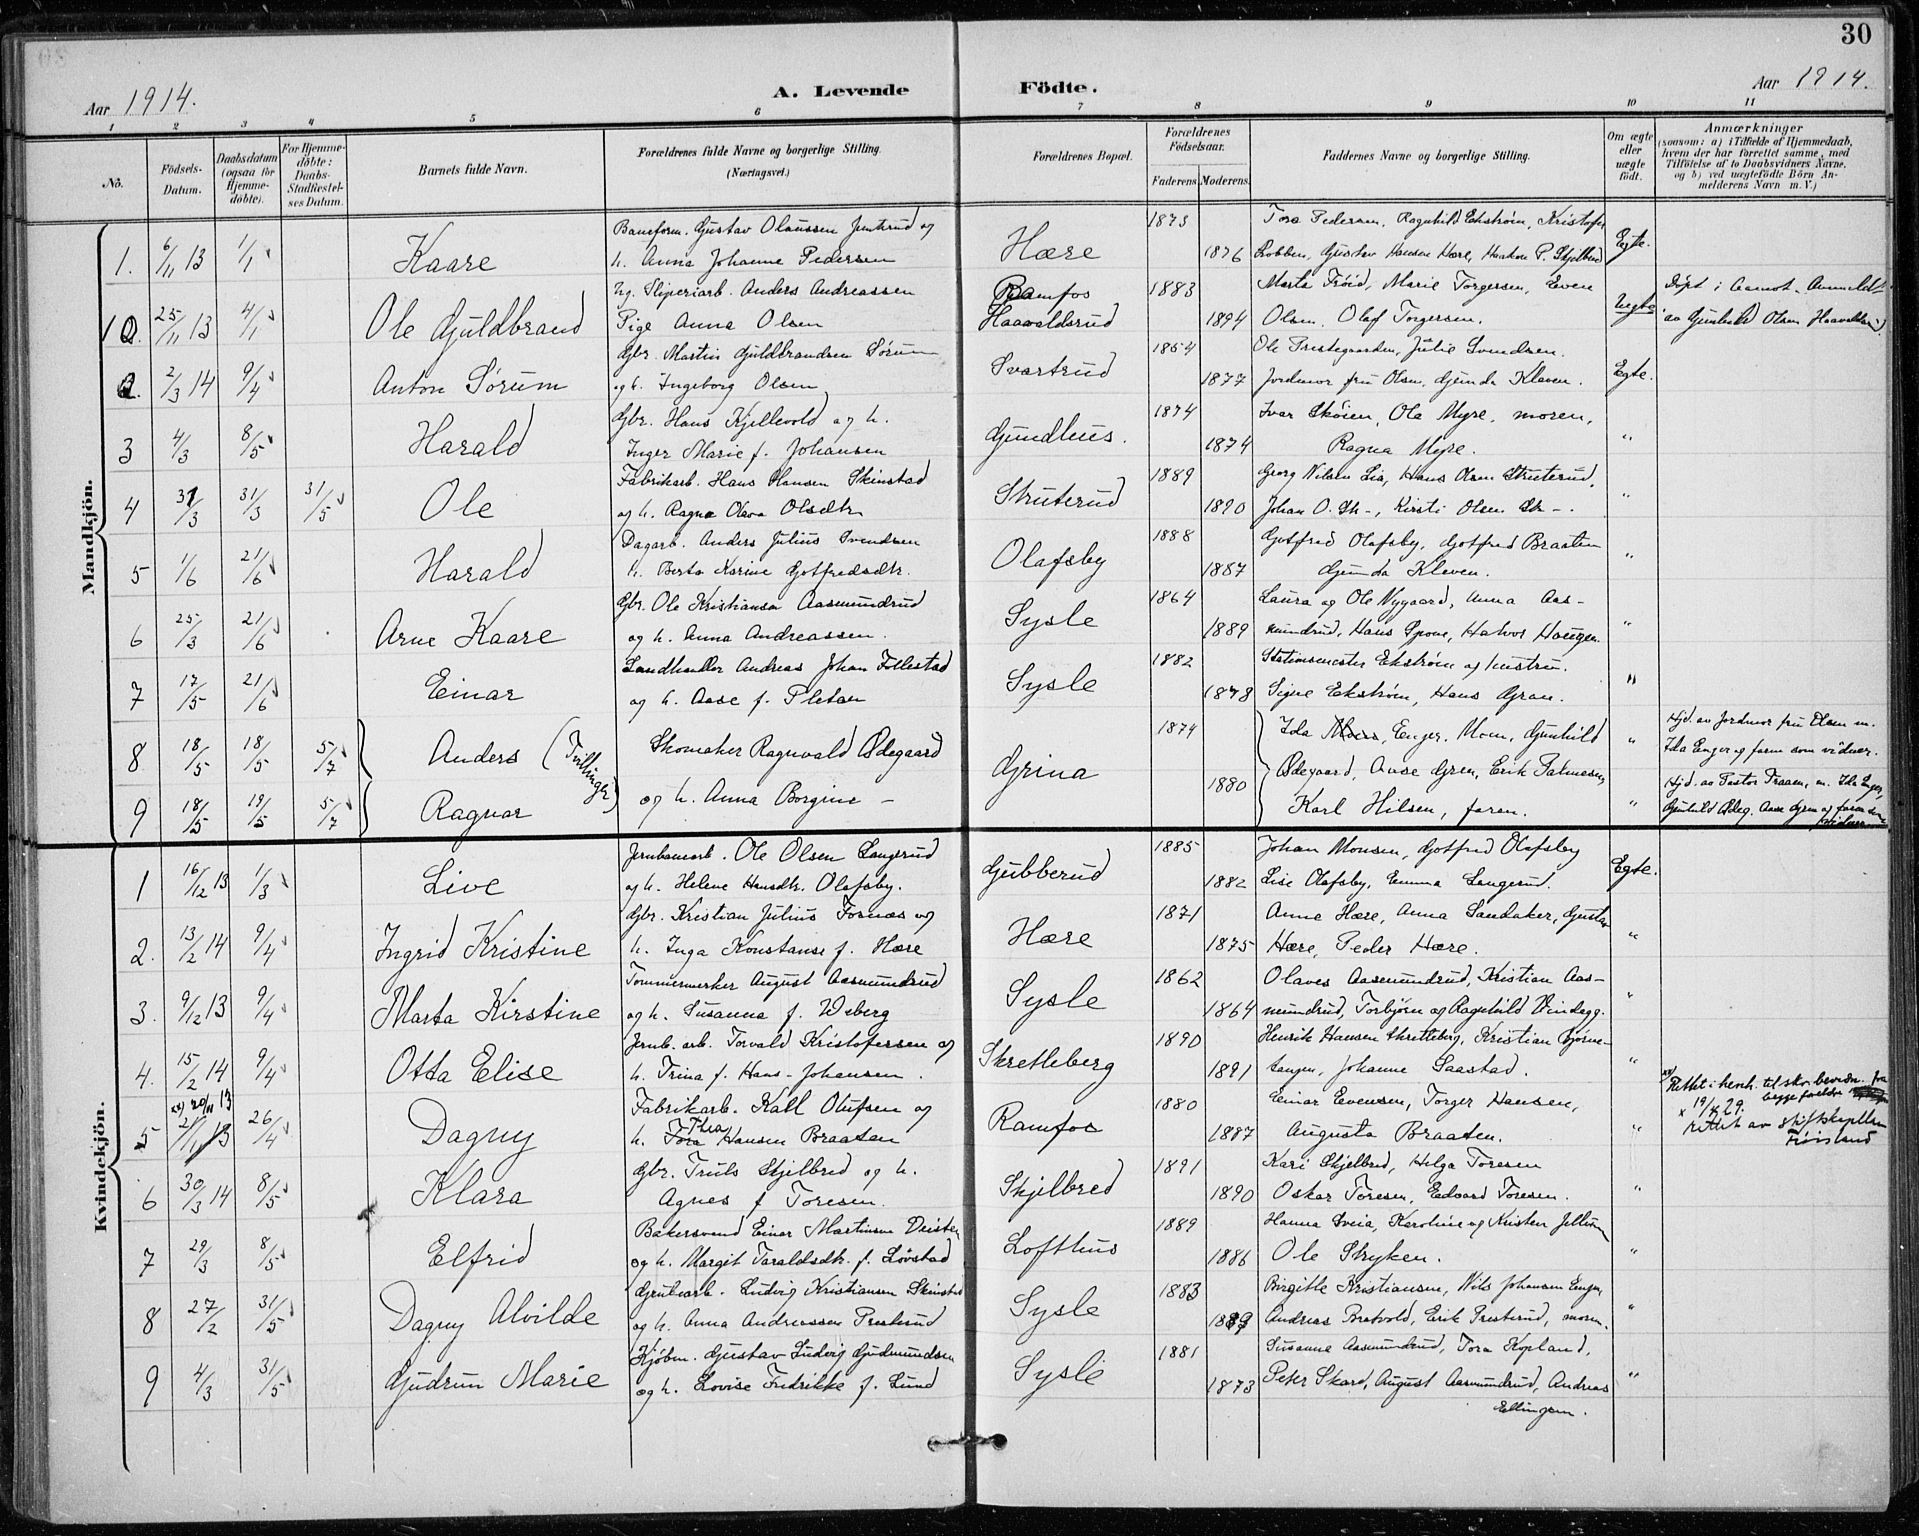 30
Aar 1914.
A. Levende Födte.
Aar 1914.
1 2 3 4 5 6 7 8 9 10 11
No.
Födsels-Datum.
Daabsdatum (ogsaa for Hjemme-döbte).
For Hjemme-döbte: Daabs-Stadfæstel-ses Datum.
Barnets fulde Navn.
Forældrenes fulde Navne og borgerlige Stilling. (Næringsvei.)
Forældrenes Bopæl.
Forældrenes Födselsaar.
Faderens Moderens
Faddernes Navne og borgerlige Stilling.
Om ægte eller uægte födt.
Anmærkninger
(saasom: a) i Tilfælde af Hjemmedaab, hvem der har forrettet samme, med Tilföielse af to Daabsvidners Navne, og b) ved uægtefödte Börn An-melderens Navn m. V.)
Mandkjön.
1. 6/11 13 1/1 Kaare
Baneform. Gustav Olaussen Jentrud og
h. Anna Johanne Pedersen
Hære 1873 1876
Tora Pedersen, Ragnhild Ekstrøm, Kristofer
Lobben, Gustav Hansen Hære, Haakon P. Skjelbred
Egte.
1. 25/11 13 4/1 Ole Guldbrand
Ug. Sliperiarb. Anders Andreassen
Pige Anna Olsen
Ramfos
Haavaldsrud 1883 1894
Marta Frøid, Marie Torgersen, Even
Olsen, Olaf Torgersen.
Uegte
Døpt i Aamot. Anmeldt
av Gunhild Olsen Haavaldsrud.
2. 2/3 14 9/4 Anton Sørum
Gbr. Martin Guldbrandsen Sørum
og h. Ingeborg Olsen
Svartrud 1864 1877
Ole Prestegaarden, Julie Svendsen.
Jordmor fru Olsen, Gunda Kleven.
Egte.
3 4/3 8/5 Harald
Gbr. Hans Kjellevold og h.
Inger Marie f. Johansen
Gundhus. 1874 1874
Ivar Skøien, Ola Myre, moren,
Ragna Myre.
"
4 31/3 31/3 31/5 Ole
Fabrikarb. Hans Hansen Skinstad
og h. Ragna Olava Olsdtr.
Struterud 1889 1890
Georg Nilsen Lia, Hans Olsen Struterud,
Johan O. Str-, Kirsti Olsen Str-.
"
5 1/6 21/6 Harald
Dagarb. Anders Julius Svendsen
h. Berta Karine Gotfredsdtr.
Olafsby 1888 1887
Gotfred Olafsby, Gotfred Braaten
Gunda Kleven.
"
6 25/3 21/6 Arne Kaare
Gbr. Ole Kristiansen Aasmundrud
og h. Anna Andreassen.
Sysle 1864 1889
Laura og Ole Nygaard, Anna Aas-
mundrud, Hans Spone, Halvor Haugen.
"
7 17/5 21/6 Einar
Landhandler Andreas Johan Follestad
og h. Aase f. Pletan
Sysle 1882 1878
Stationsmester Ekstrøm og hustru.
Signe Ekstrøm, Hans Gran.
"
8 18/5 18/5 5/7 Anders
9 18/5 19/5 5/7 Ragnar
(Tvillinger)
Skomaker Ragnvald Ødegaard
og h. Anna Borgine -
Grina 1874 1880
Ida Enger, Gunhild
Ødegaard, Aase Gren, Erik
Karl Hilsen, faren.
"
"
Hjd. av Jordmor fru Olsen m.
Ida Enger og faren som vidner.
Hjd. av Pastor Traaen, m. Ida Enger,
Gunhild Ødeg. Aase Gren og faren som
vidner.
Kvindekjön.
1 16/12 13 1/3 Live
Jernbanearb. Ole Olsen Langerud
og h. Helene Hansdtr. Olafsby.
Gubberud 1885 1882
Johan Monsen, Gotfred Olafsby
Lise Olafsby, Emma Langerud.
Egte.
2. 13/2 14 9/4 Ingrid Kristine
Gbr. Kristian Julius Fornæs og
h. Inga Konstanse f. Hære
Hære 1871 1875
Anne Hære, Anna Sandaker, Gustav
Hære, Peder Hære.
"
3. 9/12 13 9/4 Marta Kirstine
Tømmermerker August Aasmundrud
og h. Susanna f. Viberg
Sysle 1862 1864
Olaves Aasmundrud, Kristian Aas-
mundrud, Torbjørn og Ragnhild Vindegg.
"
4. 15/2 14 9/4 Otta Elise
Jernb. arb. Torvald Kristofersen og
h. Trina f. Hans-Johansen.
Skretteberg 1890 1891
Henrik Hansen Skretteberg, Kristian Bjørne-
tangen, Johanne Saastad.
"
5 xx) 20/11 13 26/4 Dagny
Fabrikarb. Karl Olufsen og
h. Tora Thea Hansen Braaten
Ramfos 1880 1887
Einar Evensen, Torger Hansen,
Augusta Braaten.
"
xx) Rettet i henh. til skr. bevidn. fra
begge foreldre
x 19/ 29.
rettet av stiftskapellan
Frøisland
6 30/3 14 8/5 Klara
Gbr. Truls Skjelbred og h.
Agnes f Toresen.
Skjelbred 1891 1890
Kari Skjelbred, Helga Toresen
Oskar Toresen, Edvard Toresen.
"
7 29/3 8/5 Elfrid
Bakersvend Einar Martinsen
og h. Margit Taraldsdtr. f. Løvstad
Lofthus 1889 1886
Hanna Sveia, Karoline og Kristen
Ole Stryken.
"
8 27/2 31/5 Dagny Alvilde
Grubearb. Ludvig Kristiansen Skinstad
og h. Anna Andreassen Presterud
Sysle 1883 1889
Birgitte Kristiansen, Nils Johansen Enger,
Andreas Bratvold, Erik Presterud, moren.
"
9 4/3 31/5 Gudrun Marie
Kjøbm. Gustav Ludvig Gudmundsen
og h. Lovise Fredrikke f. Lund
Sysle 1881 1873
Susanne Aasmundrud, Tora Kopland,
Peter Skard, August Aasmundrud, Andreas
Ellingsen.
"